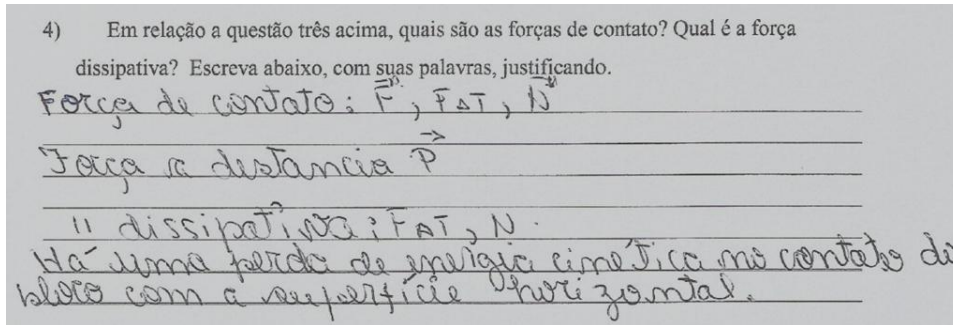 4) Em relação a questão três acima, quais são as forças de contato? Qual é a força
dissipativa? Escreva abaixo, com suas palavras, justificando.
Força de contato: F, FAT, N
Força a distancia P
" dissipativa: FAT, N.
Há uma perda de energia cinetica no contato do
bloco com a superfície horizontal.